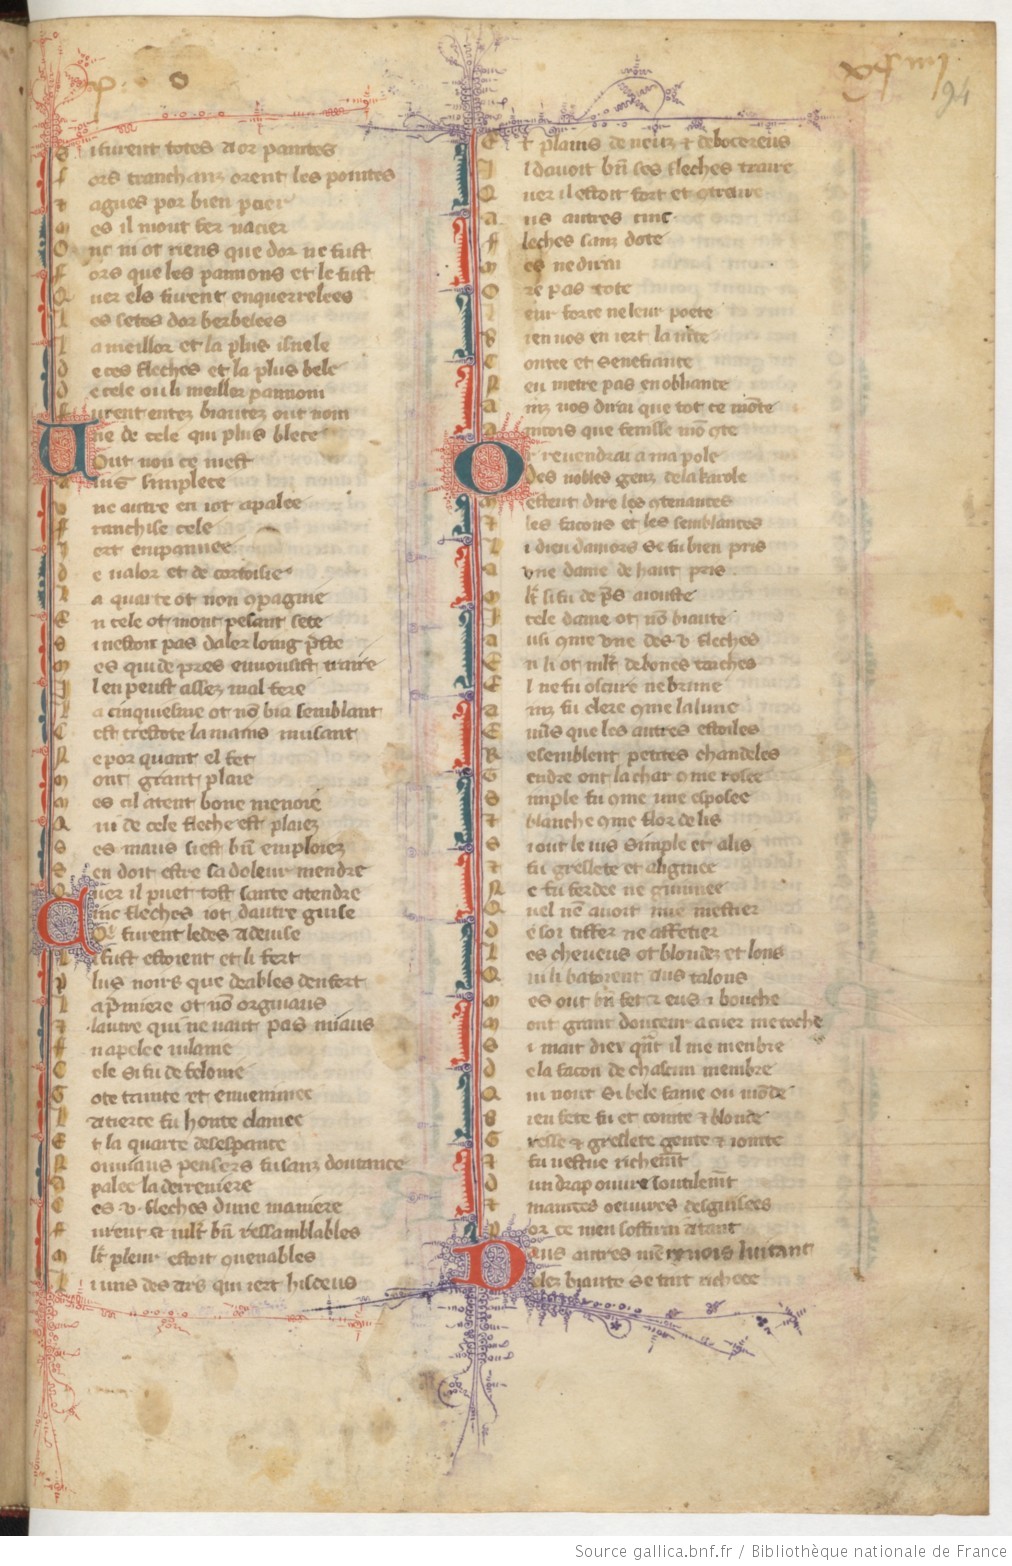 xxiiij
94
S i furent totes a or paintes
f ors tranchanz orent les pointes
agues por bien
es il niout fer nacier
O nc ni ot riens que dor ne fust
f ors que les pannons et le fust
Q uer els furent enquerrelees
es setes dor berbelees
l a meillor et la plus isnele
d e ces fleches et la plus bele
d e cele ou li meillor pannon
f urent entez biautez out nom
U ne de cele qui plus blece
Out non ce mest
simplece
v ne autre en iot apalee
f ranchise cele
ert empannee
d e valor et de cortoisie
l a quarte ot non 9pagnie
E n cele ot mout pesant sete
s i nestoit pas daler loing p̃ste
m es qui de pres en vousist traire
I l en peust assez mal fere
l a cinquiesme ot nõ biau semblant
C est trestote la mains nuisant
N e por quant el fet
m ont grant plaie
m es cil atent bone menoie
Q ui de cele fleche est plaiez
s es maus si est bñ emploiez
S en doit estre sa doleur mendre
Q uer il puet tost sante atendre
C inc fleches iot dautre guise
furent ledes a devise
L i fust estoient et li fert
p lus noirs que deables denfert
l a p̃miere ot nõ orguiaus
l autre qui ne vaut pas miaus
f u apelee vilanie
C ele si fu de felonie
G ote tainte et envenimee
l a tierce fu honte clamee
E t la quarte desesperance
N ouviaus pensers fu sanz doutance
a palee la derreniere
C es .v. fleches dune maniere
f urent et mlt bñ ressamblables
m lt pleur estoit 9venables
L i uns des ars qui iert hisdeus
E t plains de neuz et de bocereus
I l devoit bñ ces fleches traire
Q uer il estoit fort et 9traire
a us autres cinc
f leches sanz dote
m es ne dirai
O re pas tote
l eur force ne leur poete
B ien vos en iert la verite
C ontee et senefiance
N eu metre pas en obliance
a inz vos dirai que tot ce mõte
a incois que fenisse mõ 9te
O r revendrai a ma pole
Des nobles genz de la karole
m estuet dire les 9tenances
e t les facons et les semblances
L i dieu damors se fu bien pris
a vne dame de haut pris
m lt si fu de p̃s aiouste
I cele dame ot nõ biaute
a usi 9me vne des .v. fleches
E n li ot mlt de bones teches
E l ne fu oscure ne brune
a inz fu clere 9me la lune
E nvs que les autres estoiles
R esemblent petites chandeles
T endre ont la char 9me rosee
S imple fu 9me une esposee
E t blanche 9me flor de lis
S i out le vis simple et alis
E t fu greslete et alignee
N e fu fardee ne guignee
Q uel nẽ avoit mie mestier
D e soi tiffer ne affetier
L es cheveus ot blondez et lons
Q ui li batoient aus talons
n es out bñ fet et eus et bouche
m ont grant douceur au cuer me toche
S i mait diex qñt il me menbre
d e la facon de chascun membre
Q ui nout si bele fame ou mõde
B ien fete fu et cointe et blonde
G resle et greslete gente et iointe
E t fu vestue richem̃t
D un drap ouvre soutilem̃t
E t maintes oeuvres desguisees
P or ce men soffirrai atant
D aus autres men revois luitant
delez biaute se tint richece
Source gallica.bnf.fr / Bibliothèque nationale de France